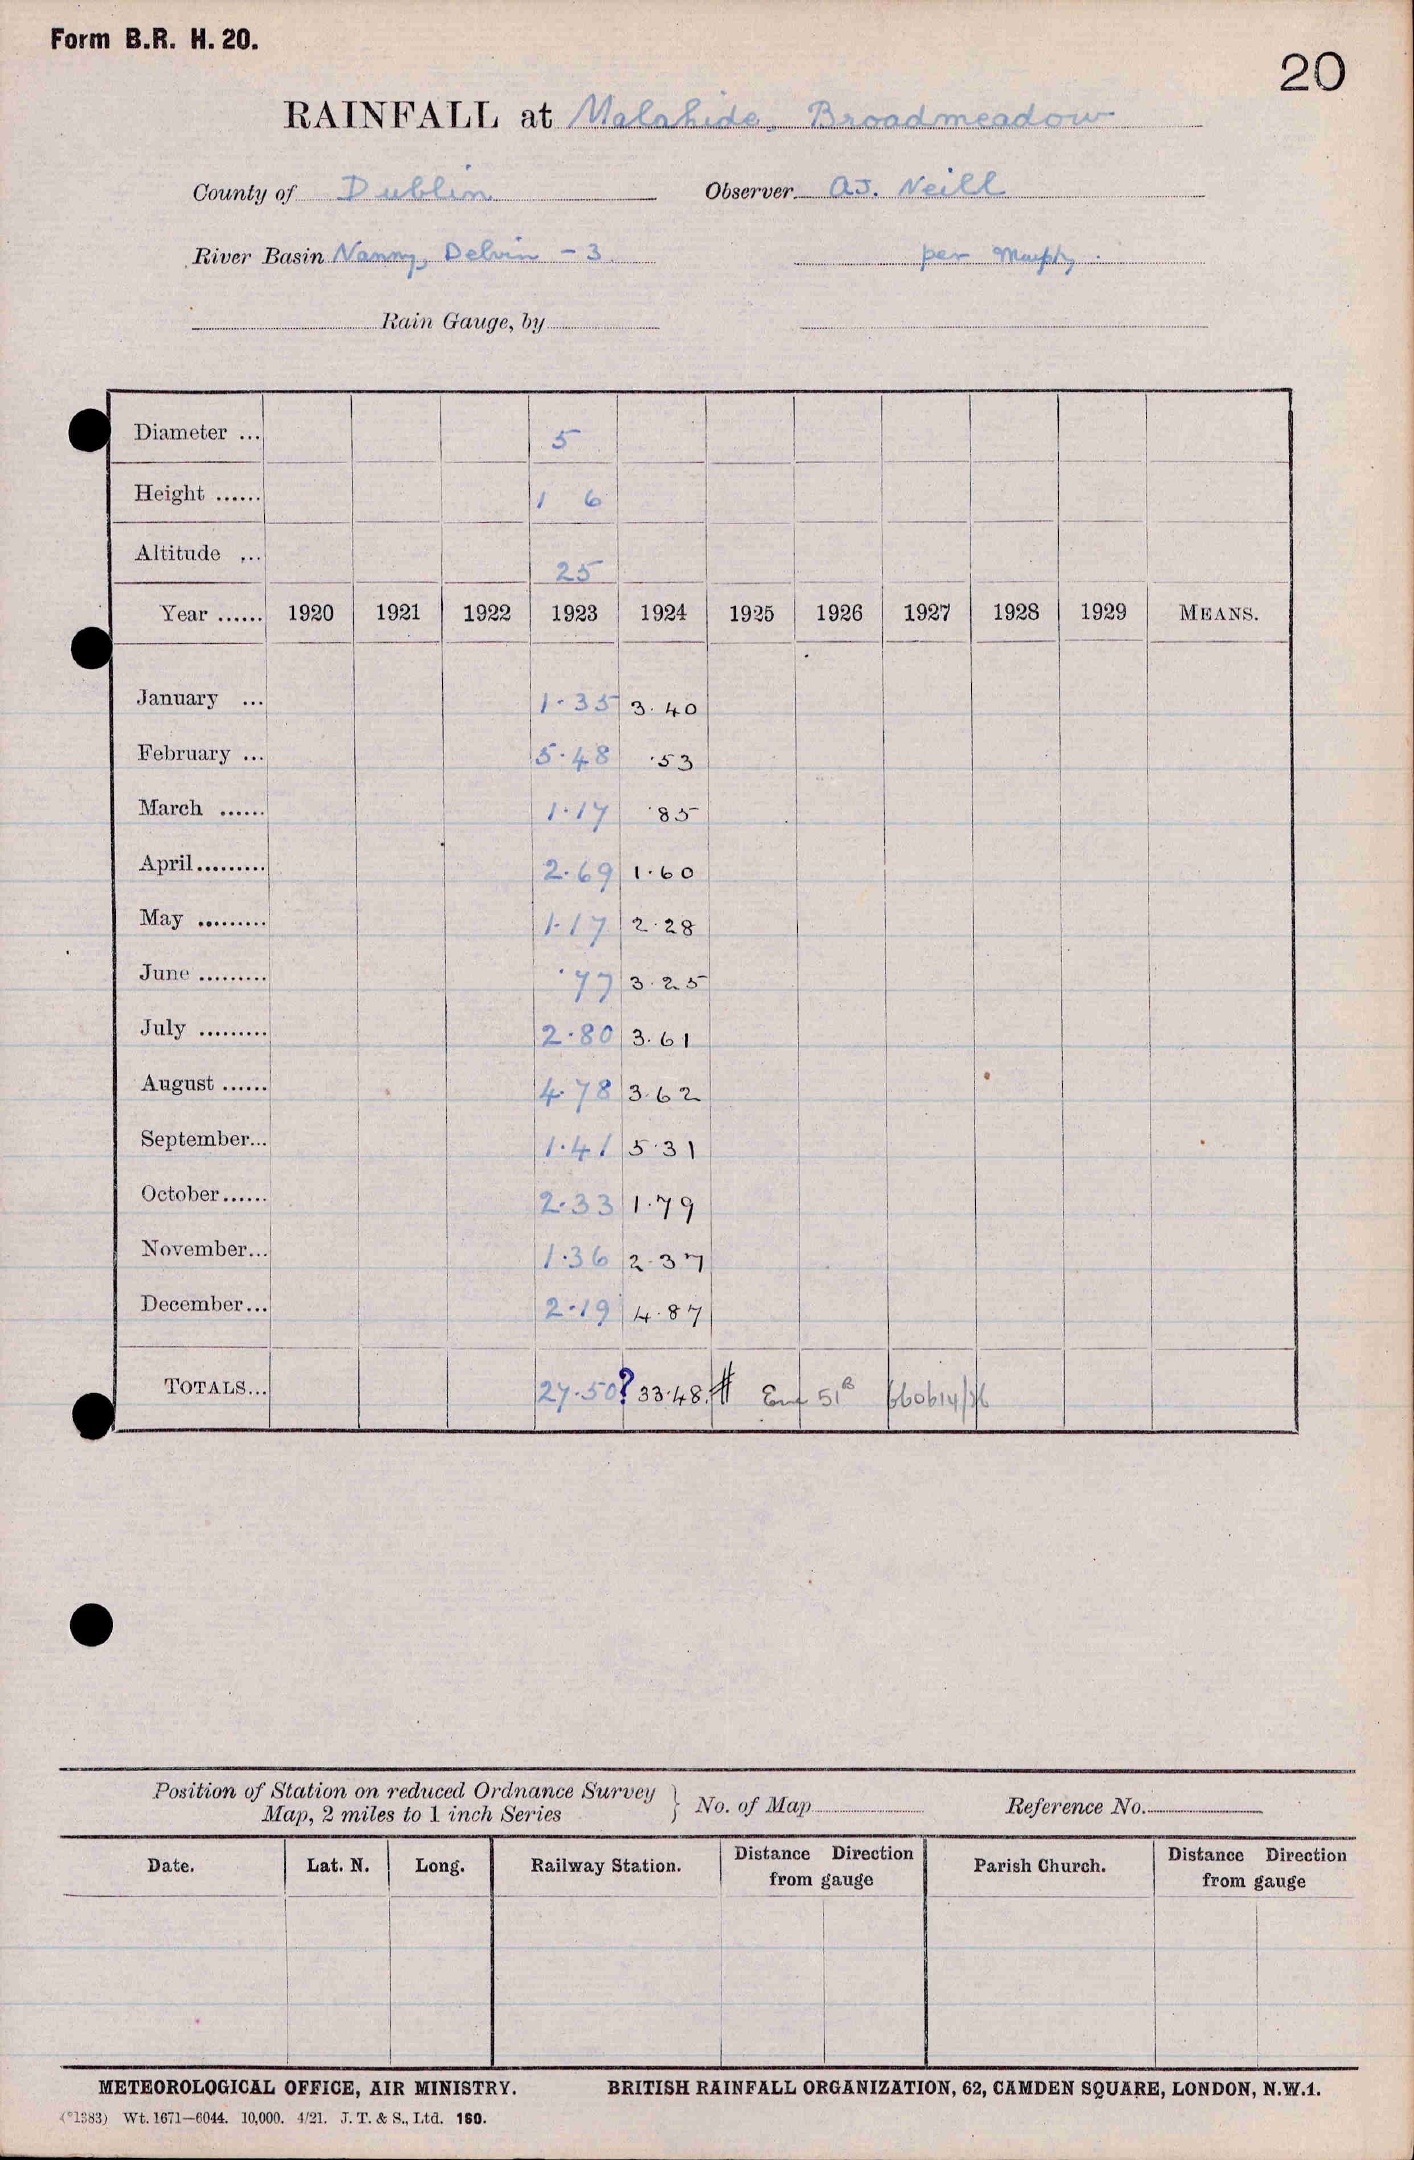 Form B.R. H. 20.
20
RAINFALL at Malahide, Broadmeadow
County of Dublin Observer A.J. Neill
River Basin Nanny, Delvin - 3 per Murphy.
Rain Gauge, by
Diameter ... 5
Height ...... 1 6
Altitude ... 25
Year ...... 1920 1921 1922 1923 1924 1925 1926 1927 1928 1929 MEANS.
January ... 1.35 3.40
February ... 5.48 .53
March ...... 1.17 .85
April......... 2.69 1.60
May ......... 1.17 2.28
June ......... .77 3.25
July ......... 2.80 3.61
August ...... 4.78 3.62
September... 1.41 5.31
October...... 2.33 1.79
November... 1.36 2.37
December... 2.19 4.87
TOTALS... 27.50? 33.48. # 51B 660614/26
Position of Station on reduced Ordnance Survey
Map, 2 miles to 1 inch Series } No. of Map Reference No.
Date. Lat. N. Long. Railway Station. Distance Direction from gauge Parish Church. Distance Direction from gauge
METEOROLOGICAL OFFICE, AIR MINISTRY. BRITISH RAINFALL ORGANIZATION, 62, CAMDEN SQUARE, LONDON, N.W.1.
(*1383) Wt. 1671—6044. 10,000. 4/21. J. T. & S., Ltd. 160.